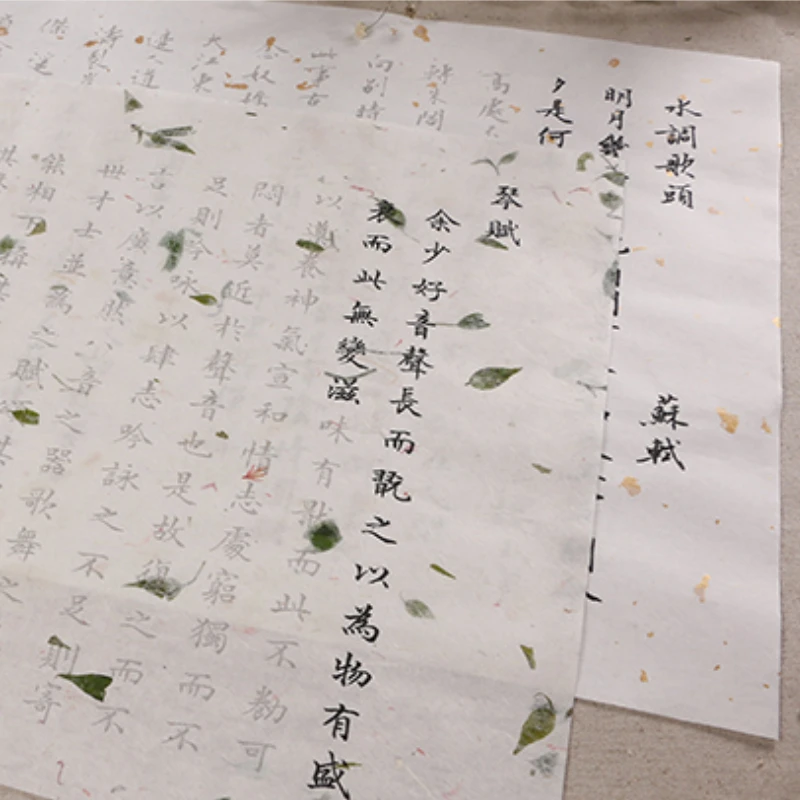 水調歌頭 蘇軾
明月
夕是何
高處不
轉朱閣
向別時
此事古
念奴嬌
大江東
琴賦
余少好音聲長而翫之以為物有盛
衰而此無變滋味有猒而此不勌可
以導養神氣宣和情志處窮獨而不
悶者莫近於聲音也是故復之而不
足則吟詠以肆志吟詠之不足則寄
言以廣意然八音之器歌舞之
世才士並為之賦